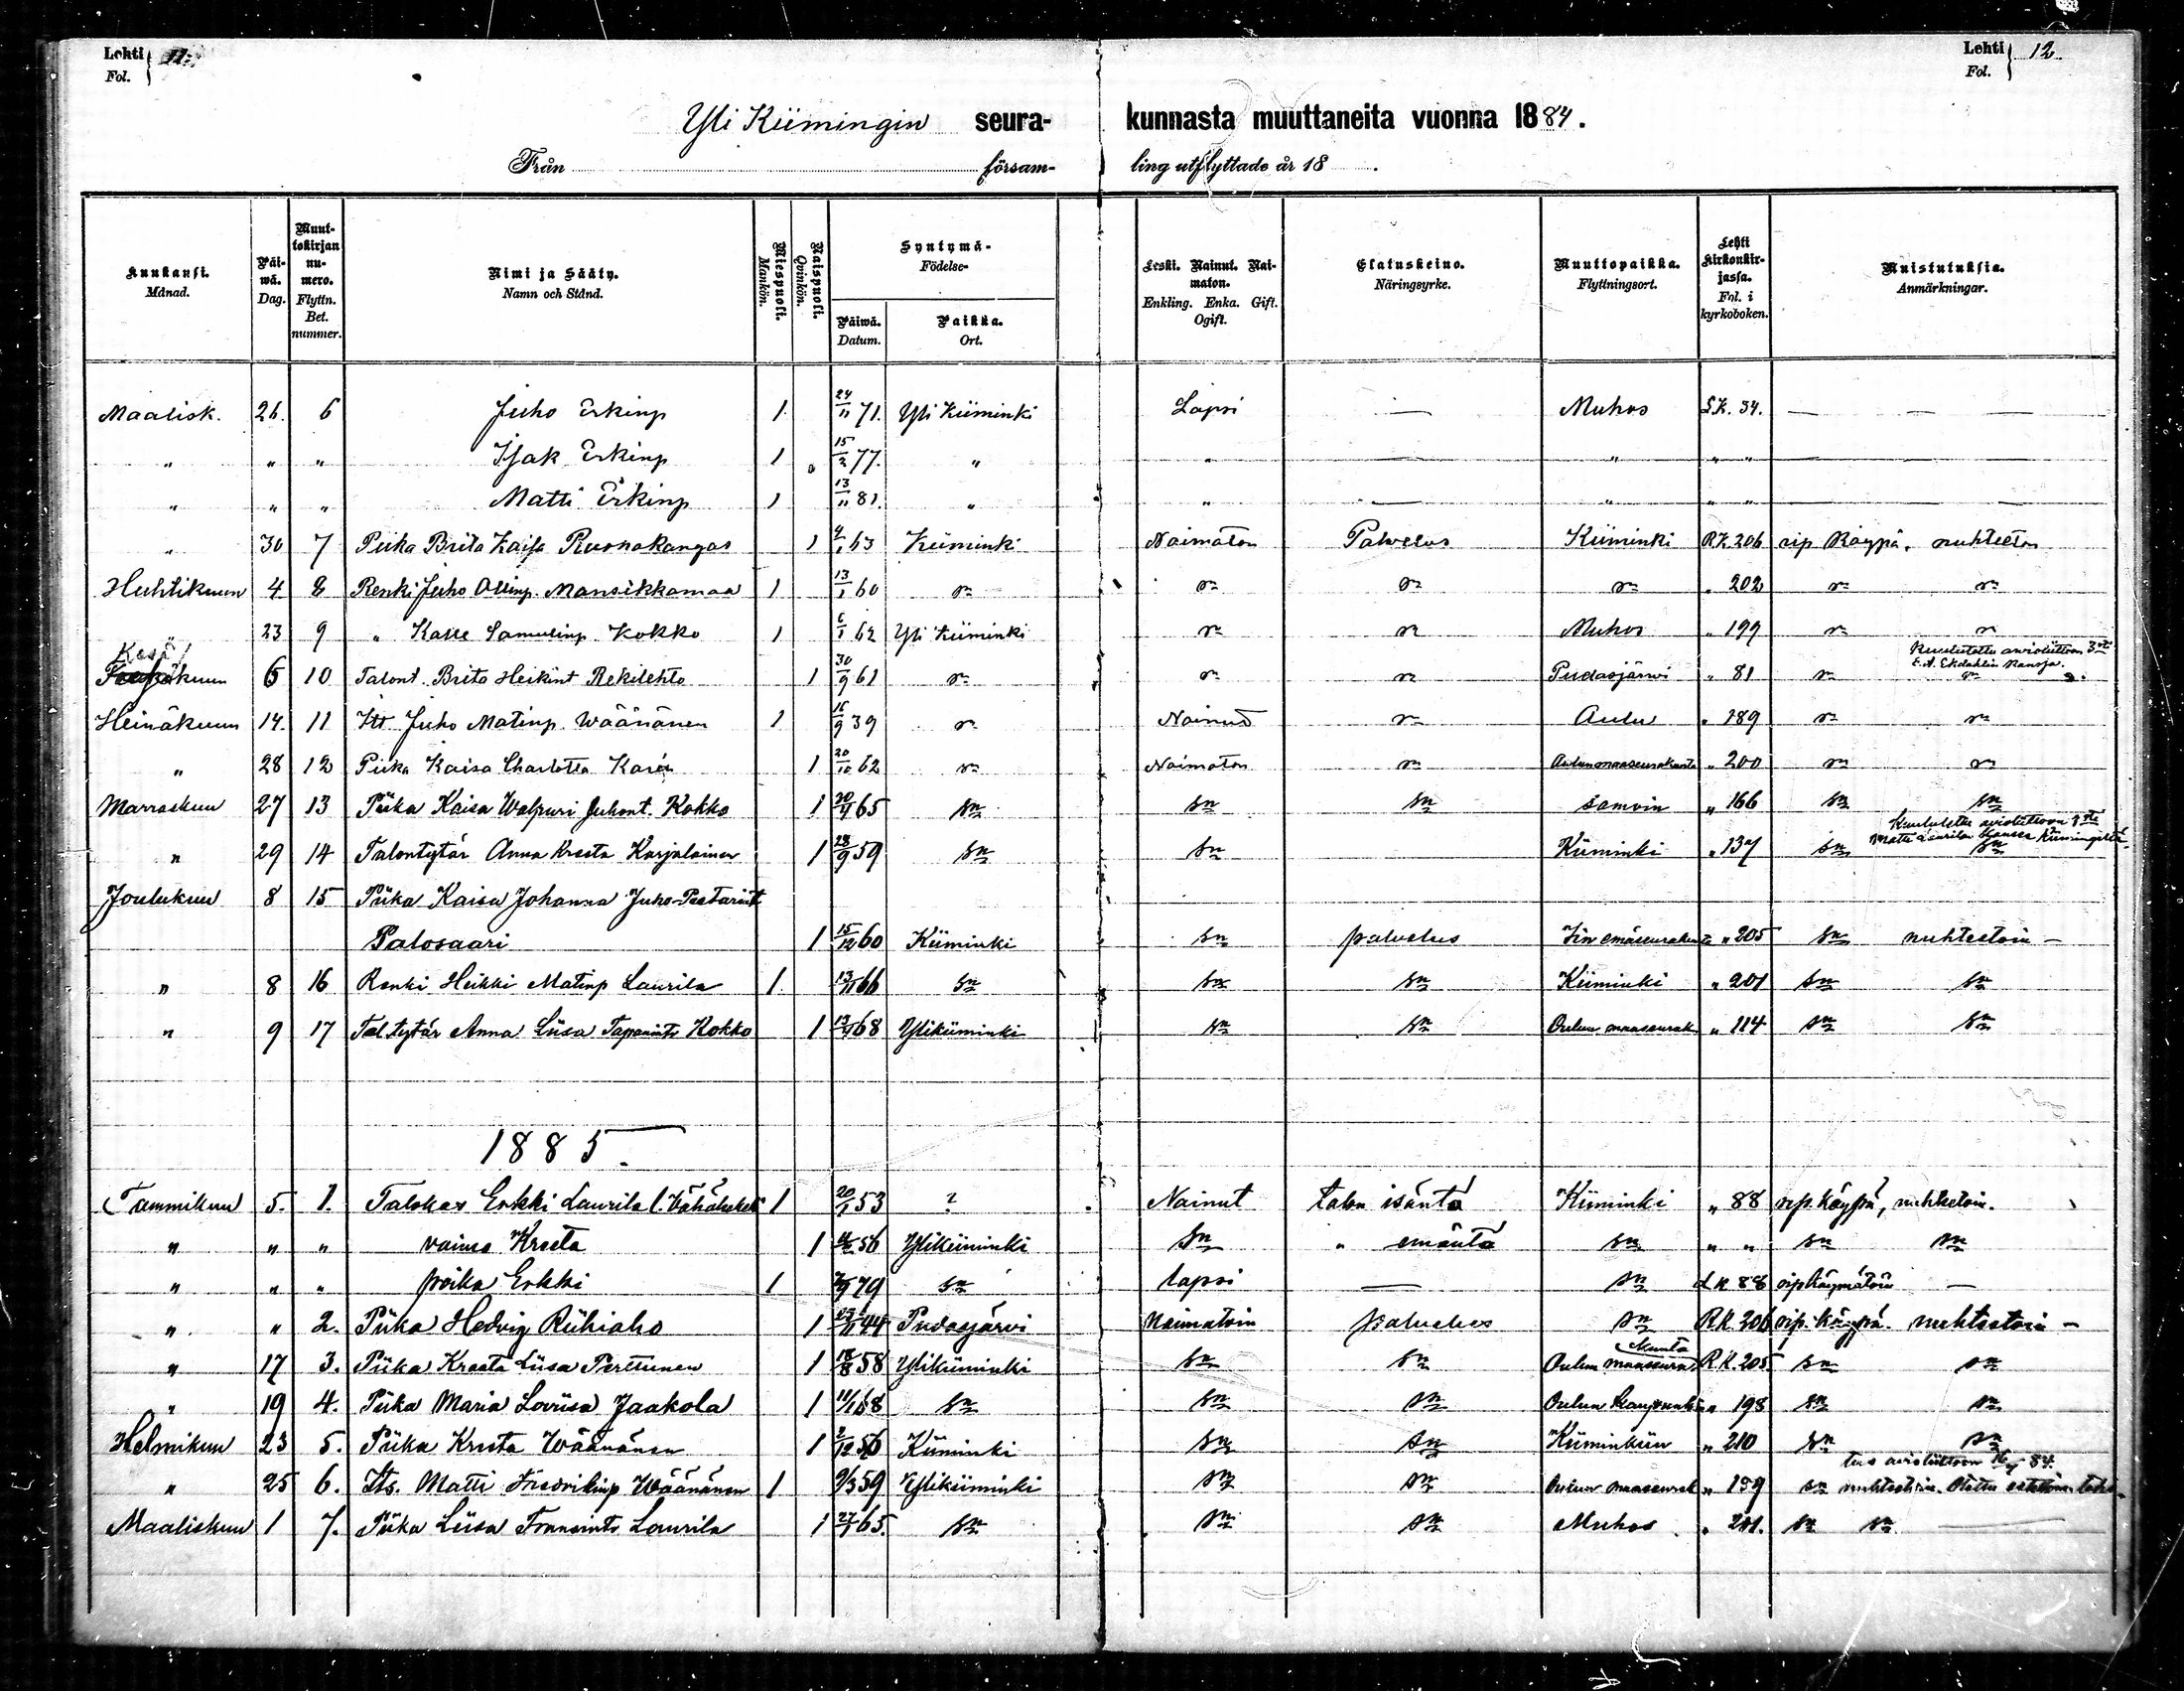 Lehti Fol. 11.
Lehti Fol. 12
Yli Kiimingin seura- kunnasta muuttaneita vuonna 1884.
Från försam- ling utflyttade år 18 .
Kuukausi. Månad. Päiwä. Dag. Muuttokirjan numero. Flyttn. Bet. nummer. Nimi ja Sääty. Namn och Stånd. Miespuoli. Mankön. Naispuoli. Qvinkön. Syntymä- Födelse- Päiwä. Datum. Paikka. Ort. Leski. Nainut. Naimaton. Enkling. Enka. Gift. Ogift. Elatuskeino. Näringsyrke. Muuttopaikka. Flyttningsort. Lehti kirkonkirjassa. Fol. i kyrkoboken. Muistutuksia. Anmärkningar.
Maalisk. 26. 6 Juho Erkinp 1. 24/11 71. Yli Kiiminki Lapsi — Muhos L.K. 34. — —
" " " Isak Erkinp 1 15/2 77. " " — " " " —
" " " Matti Erkinp 1 13/11 81. " " — " " " —
" 30 7 Piika Brita Kaisa Ruonakangas 1 4/1 63 Kiiminki Naimaton Palvelus Kiiminki R.K. 206 rip. käypä, nuhteeton
Huhtikuun 4 8 Renki Juho Ollinp. Mansikkamaa 1 13/1 60 sn sn sn sn " 202 sn sn
23 9 " Kalle Samulinp. Kokko 1 6/1 62 Yli Kiiminki sn sn Muhos " 199 sn sn
Kesä
kuun 6 10 Talont. Brita Heikint Rekilehto 1 30/9 61 sn sn sn Pudasjärwi " 81 sn Kuulutettu avioliittoon 3st E. A. Ekdahlin kanssa. sn
Heinäkuun 14. 11 Itt. Juho Matinp. Wäänänen 1 16/9 39 sn Nainut sn Oulu " 189 sn sn
" 28 12 Piika Kaisa Charlotta Karén 1 20/10 62 sn Naimaton sn Oulun maaseurakunta " 200 sn sn
Marraskuu 27 13 Piika Kaisa Walpuri Juhont. Kokko 1 20/4 65 sn sn sn samoin " 166 sn sn
" 29 14 Talontytär Anna Kreeta Karjalainen 1 28/9 59 sn sn Kiiminki " 137 sn Kuulutettu avioliittoon Matti Laurilan kanssa Kiimingistä. sn
Joulukuu 8 15 Piika Kaisa Johanna Juho-Peetarint
Palosaari 1 15/12 60 Kiiminki sn palvelus Iin emäseurakunta " 205 sn nuhteetoin —
" 8 16 Renki Heikki Matinp Laurila 1. 13/11 66 sn sn sn Kiiminki " 201 sn sn
" 9 17 Tal. tytär Anna Liisa Tapanints Kokko 1 13/9 68 Ylikiiminki sn sn Oulun maaseurak " 114 sn sn
1885.
Tammikuu 5. 1. Talokas Erkki Laurila l. 1 20/1 53 ? Nainut talon isäntä Kiiminki " 88 rip. käypä, nuhteetoin.
" " " vaimo Kreeta 1 56 Ylikiiminki sn " emäntä sn " " sn sn
" " " poika Erkki 1 79 sn lapsi — sn LK 88 ripikäymätöin —
" " 2. Piika Hedvig Riihiaho 1 23/11 44 Pudasjärvi Naimatoin palvelus sn RK. 206 rip. käypä. nuhteetoin —
" 17 3. Piika Kreeta Liisa Perttunen 1 18/8 58 Ylikiiminki sn sn Oulun maaseurakunta R.K. 205 sn sn
" 19 4. Piika Maria Loviisa Jaakola 1 11/1 68 sn sn sn Oulun kaupunki " 198 sn sn
Helmikuu 23 5. Piika Kreeta Wäänänen 1 2/12 56 Kiiminki sn sn Kiiminkiin " 210 sn sn
" 25 6. Its. Matti Fredrikinp Wäänänen 1 9/3 59 Ylikiiminki sn sn Oulun maaseurak " 159 sn nuhteetoin. Otettu esteettömän todistus avioliittoon 84.
Maaliskuu 1 7. Piika Liisa Fransints Laurila 1 27/1 65. sn sn sn Muhos " 201. sn sn —